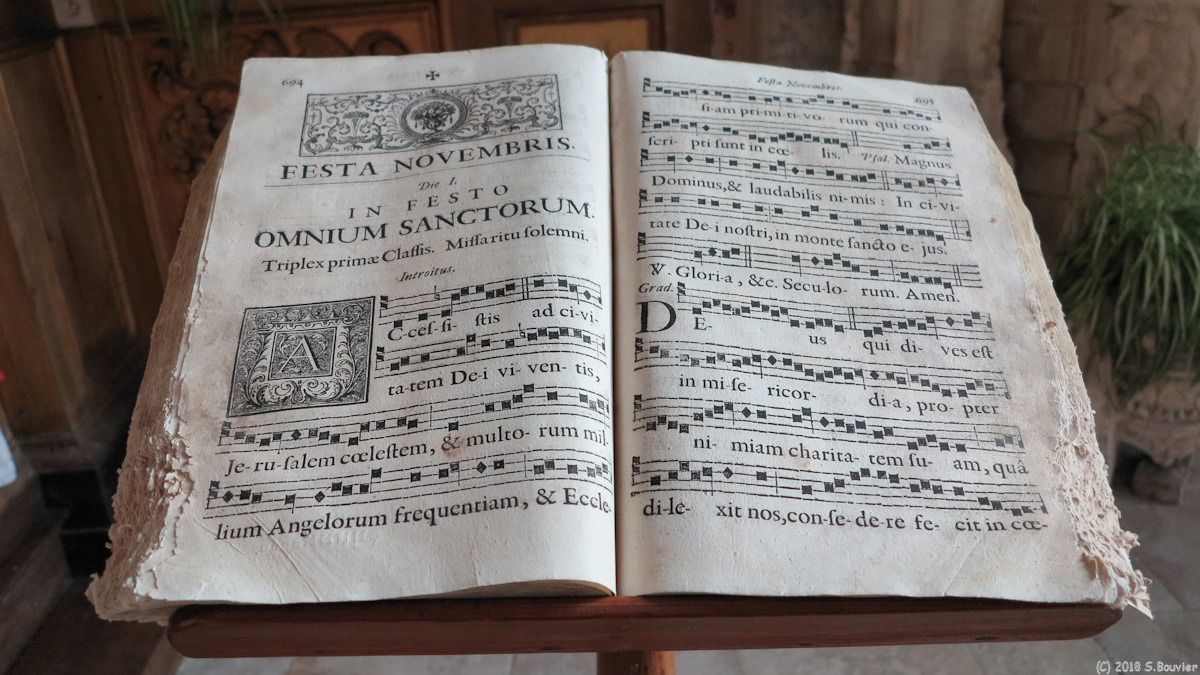 694
✠
FESTA NOVEMBRIS.
Die I.
IN FESTO
OMNIUM SANCTORUM.
Triplex primæ Claſſis. Miſſa ritu ſolemni.
Introitus.
A
C-ceſ-ſi- ſtis ad ci-vi-
ta-tem De-i vi-ven-tis,
Je-ru-ſalem cœleſtem, & multo-rum mil-
lium Angelorum frequentiam, & Eccle-
Feſta Novembris. 695
ſi-am pri-mi-ti-vo- rum qui con-
ſcri- pti ſunt in cœ- lis. Pſal. Magnus
Dominus, & laudabilis ni-mis : In ci-vi-
tate De-i noſtri, in monte ſancto e-jus.
V. Glori-a, &c. Secu-lo- rum. Amen.
Grad.
D E- us qui di- ves eſt
in mi-ſe- ricor- di-a, pro- pter
ni- miam charita- tem ſu- am, quâ
di-le- xit nos, con-ſe-de-re fe- cit in cœ-
(C) 2018 S.Bouvier